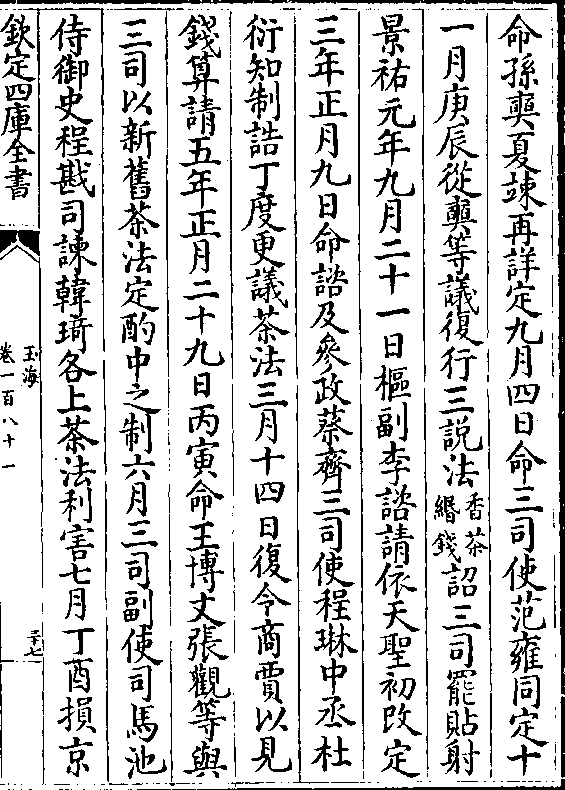 命孫奭夏竦再詳定九月四日命三司使范雍同定十
一月庚辰從奭等議復行三説法香茶緡錢詔三司罷貼射
景祐元年九月二十一日樞副李諮請依天聖初改定
三年正月九日命諮及參政蔡齊三司使程琳中丞杜
衍知制誥丁度更議茶法三月十四日復令商賈以見
錢算請五年正月二十九日丙寅命王博文張觀等與
三司以新舊茶法定酌中之制六月三司副使司馬池
侍御史程戡司諫韓琦各上茶法利害七月丁酉損京
欽定四庫全書
玉海
卷一百八十一
三十七